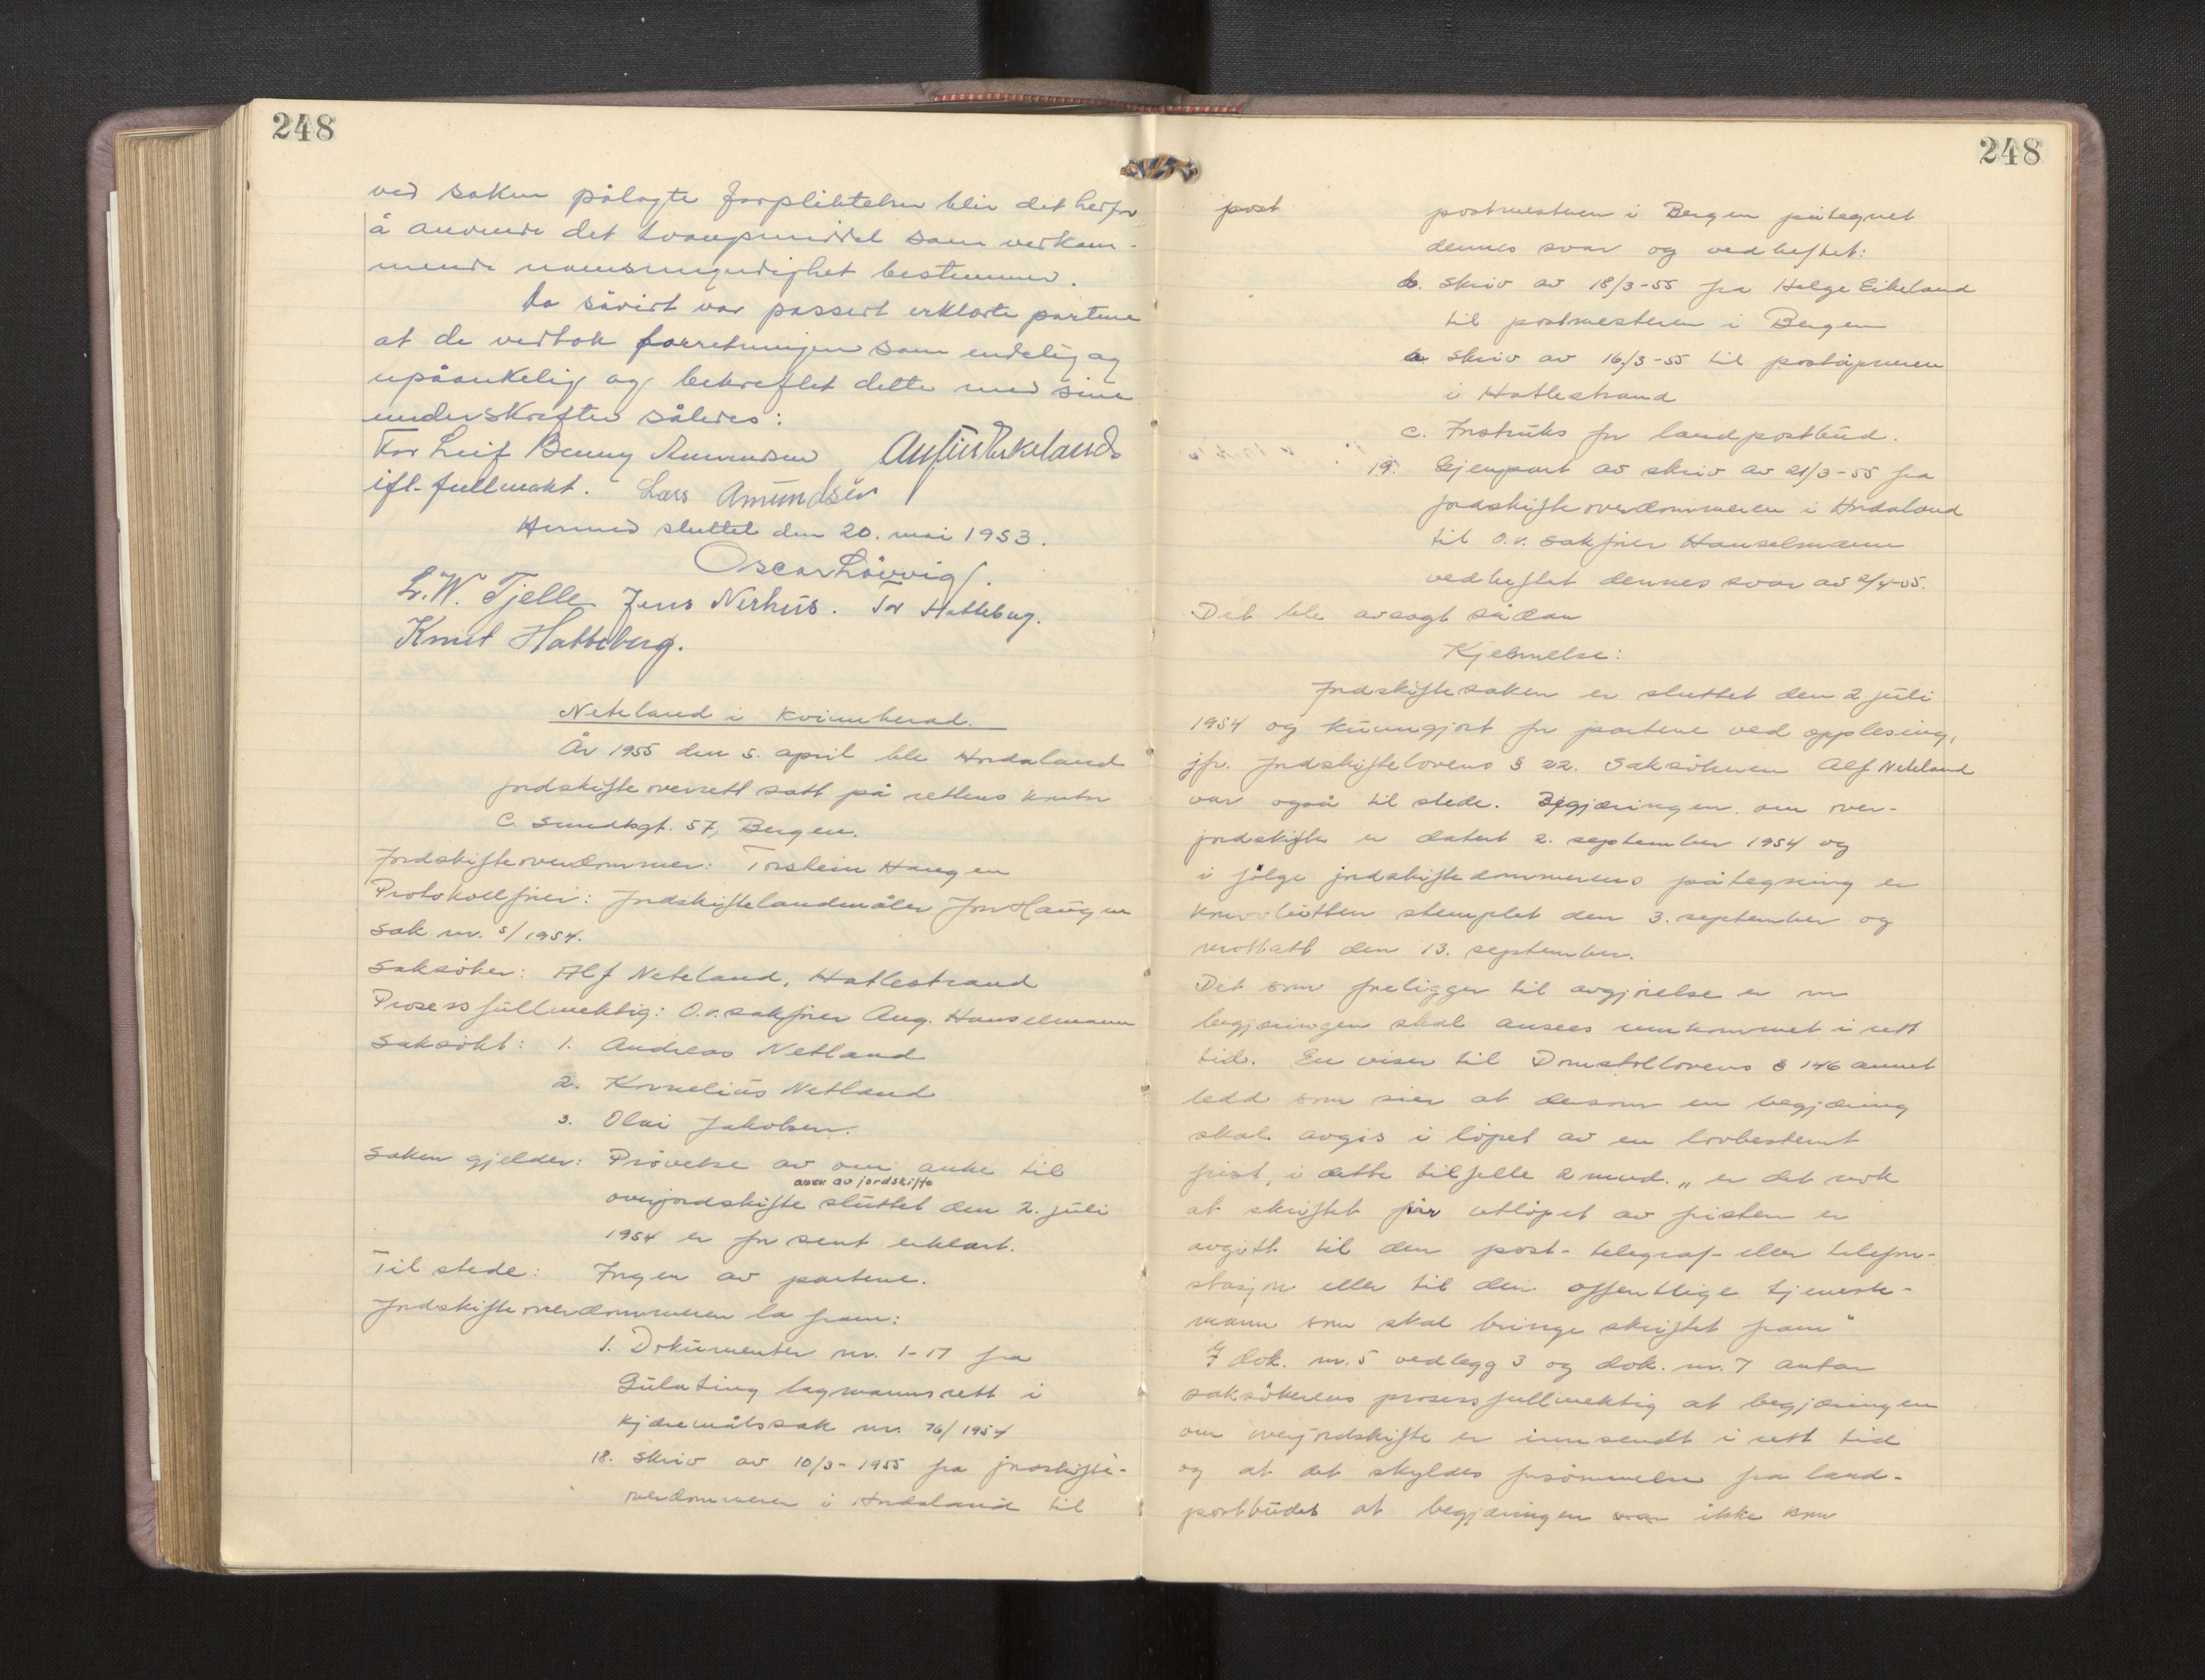 248
ved saken pålagte forpliktelser blir det herfor
å anvende det tvangsmiddel som vedkom-
mende namsmyndighet bestemmer.
Da såvidt var passert erklærte partene
at de vedtok forretningen som endelig og
upåankelig og bekreftet dette med sine
underskrifter således:
For Leif Benny Amundsen
ifl. fullmakt. Lars Amundsen
Hermed sluttet den 20. mai 1953.
Oscar Lövvig.
L. W. Tjelle Jens Nerhus. Tor Hatteberg.
Knut Hatteberg.
Neteland i Kvinnherad.
År 1955 den 5. april ble Hordaland
jordskifteoverrett satt på rettens kontor
C. Sundtsgt. 57, Bergen.
Jordskifteoverdommer: Torstein Haugen
Protokollfører: Jordskiftelandmåler Jon Haugen
Sak nr. 5/1954.
Saksöker: Alf Neteland, Hatlestrand
Prosessfullmektig: O.r.sakfører Aug. Hanselmann
Saksökt: 1. Andreas Netland
2. Kornelius Netland
3. Olai Jakobsen.
Saken gjelder: Prövelse av om anke til
over av jordskifte
overjordskifte sluttet den 2. juli
1954 er for sent erklært.
Til stede: Ingen av partene.
Jordskifteoverdommeren la fram:
1. Dokumenter nr. 1-17 fra
Gulating lagmannsrett i
kjæremålssak nr. 76/1954
18. Skriv av 10/3-1955 fra jordskifte-
overdommeren i Hordaland til
248
post
postmesteren i Bergen påtegnet
dennes svar og vedheftet:
b. Skriv av 18/3-55 fra Helge Eikeland
til postmesteren i Bergen
a. Skriv av 16/3-55 til poståpneren
i Hatlestrand
c. Instruks for landpostbud.
19. Gjenpart av skriv av 21/3-55 fra
jordskifteoverdommeren i Hordaland
til O.r. sakfører Hanselmann
vedheftet dennes svar av 2/4-55.
Det ble avsagt sådan
Kjennelse:
Jordskiftesaken er sluttet den 2 juli
1954 og kunngjort for partene ved opplesing,
jfr. Jordskiftelovens § 22. Saksökeren Alf Neteland
var også til stede. Begjæringen om over-
jordskifte er datert 2. september 1954 og
i fölge jordskiftedommerens påtegning er
konvolutten stemplet den 3. september og
mottatt den 13. september.
Det som foreligger til avgjörelse er om
begjæringen skal ansees innkommet i rett
tid. En viser til Domstollovens § 146 annet
ledd som sier at dersom en begjæring
skal avgis i löpet av en lovbestemt
frist, i dette tilfelle 2 mnd. „ er det nok
at skriftet för utlöpet av fristen er
avgitt til den post- telegraf- eller telefon-
stasjon eller til den offentlige tjeneste-
mann som skal bringe skriftet fram"
I dok. nr. 5 vedlegg 3 og dok. nr. 7 antar
saksökerens prosessfullmektig at begjæringen
om overjordskifte er innsendt i rett tid
og at det skyldes forsömmelse fra land-
postbudet at begjæringen ikke kom